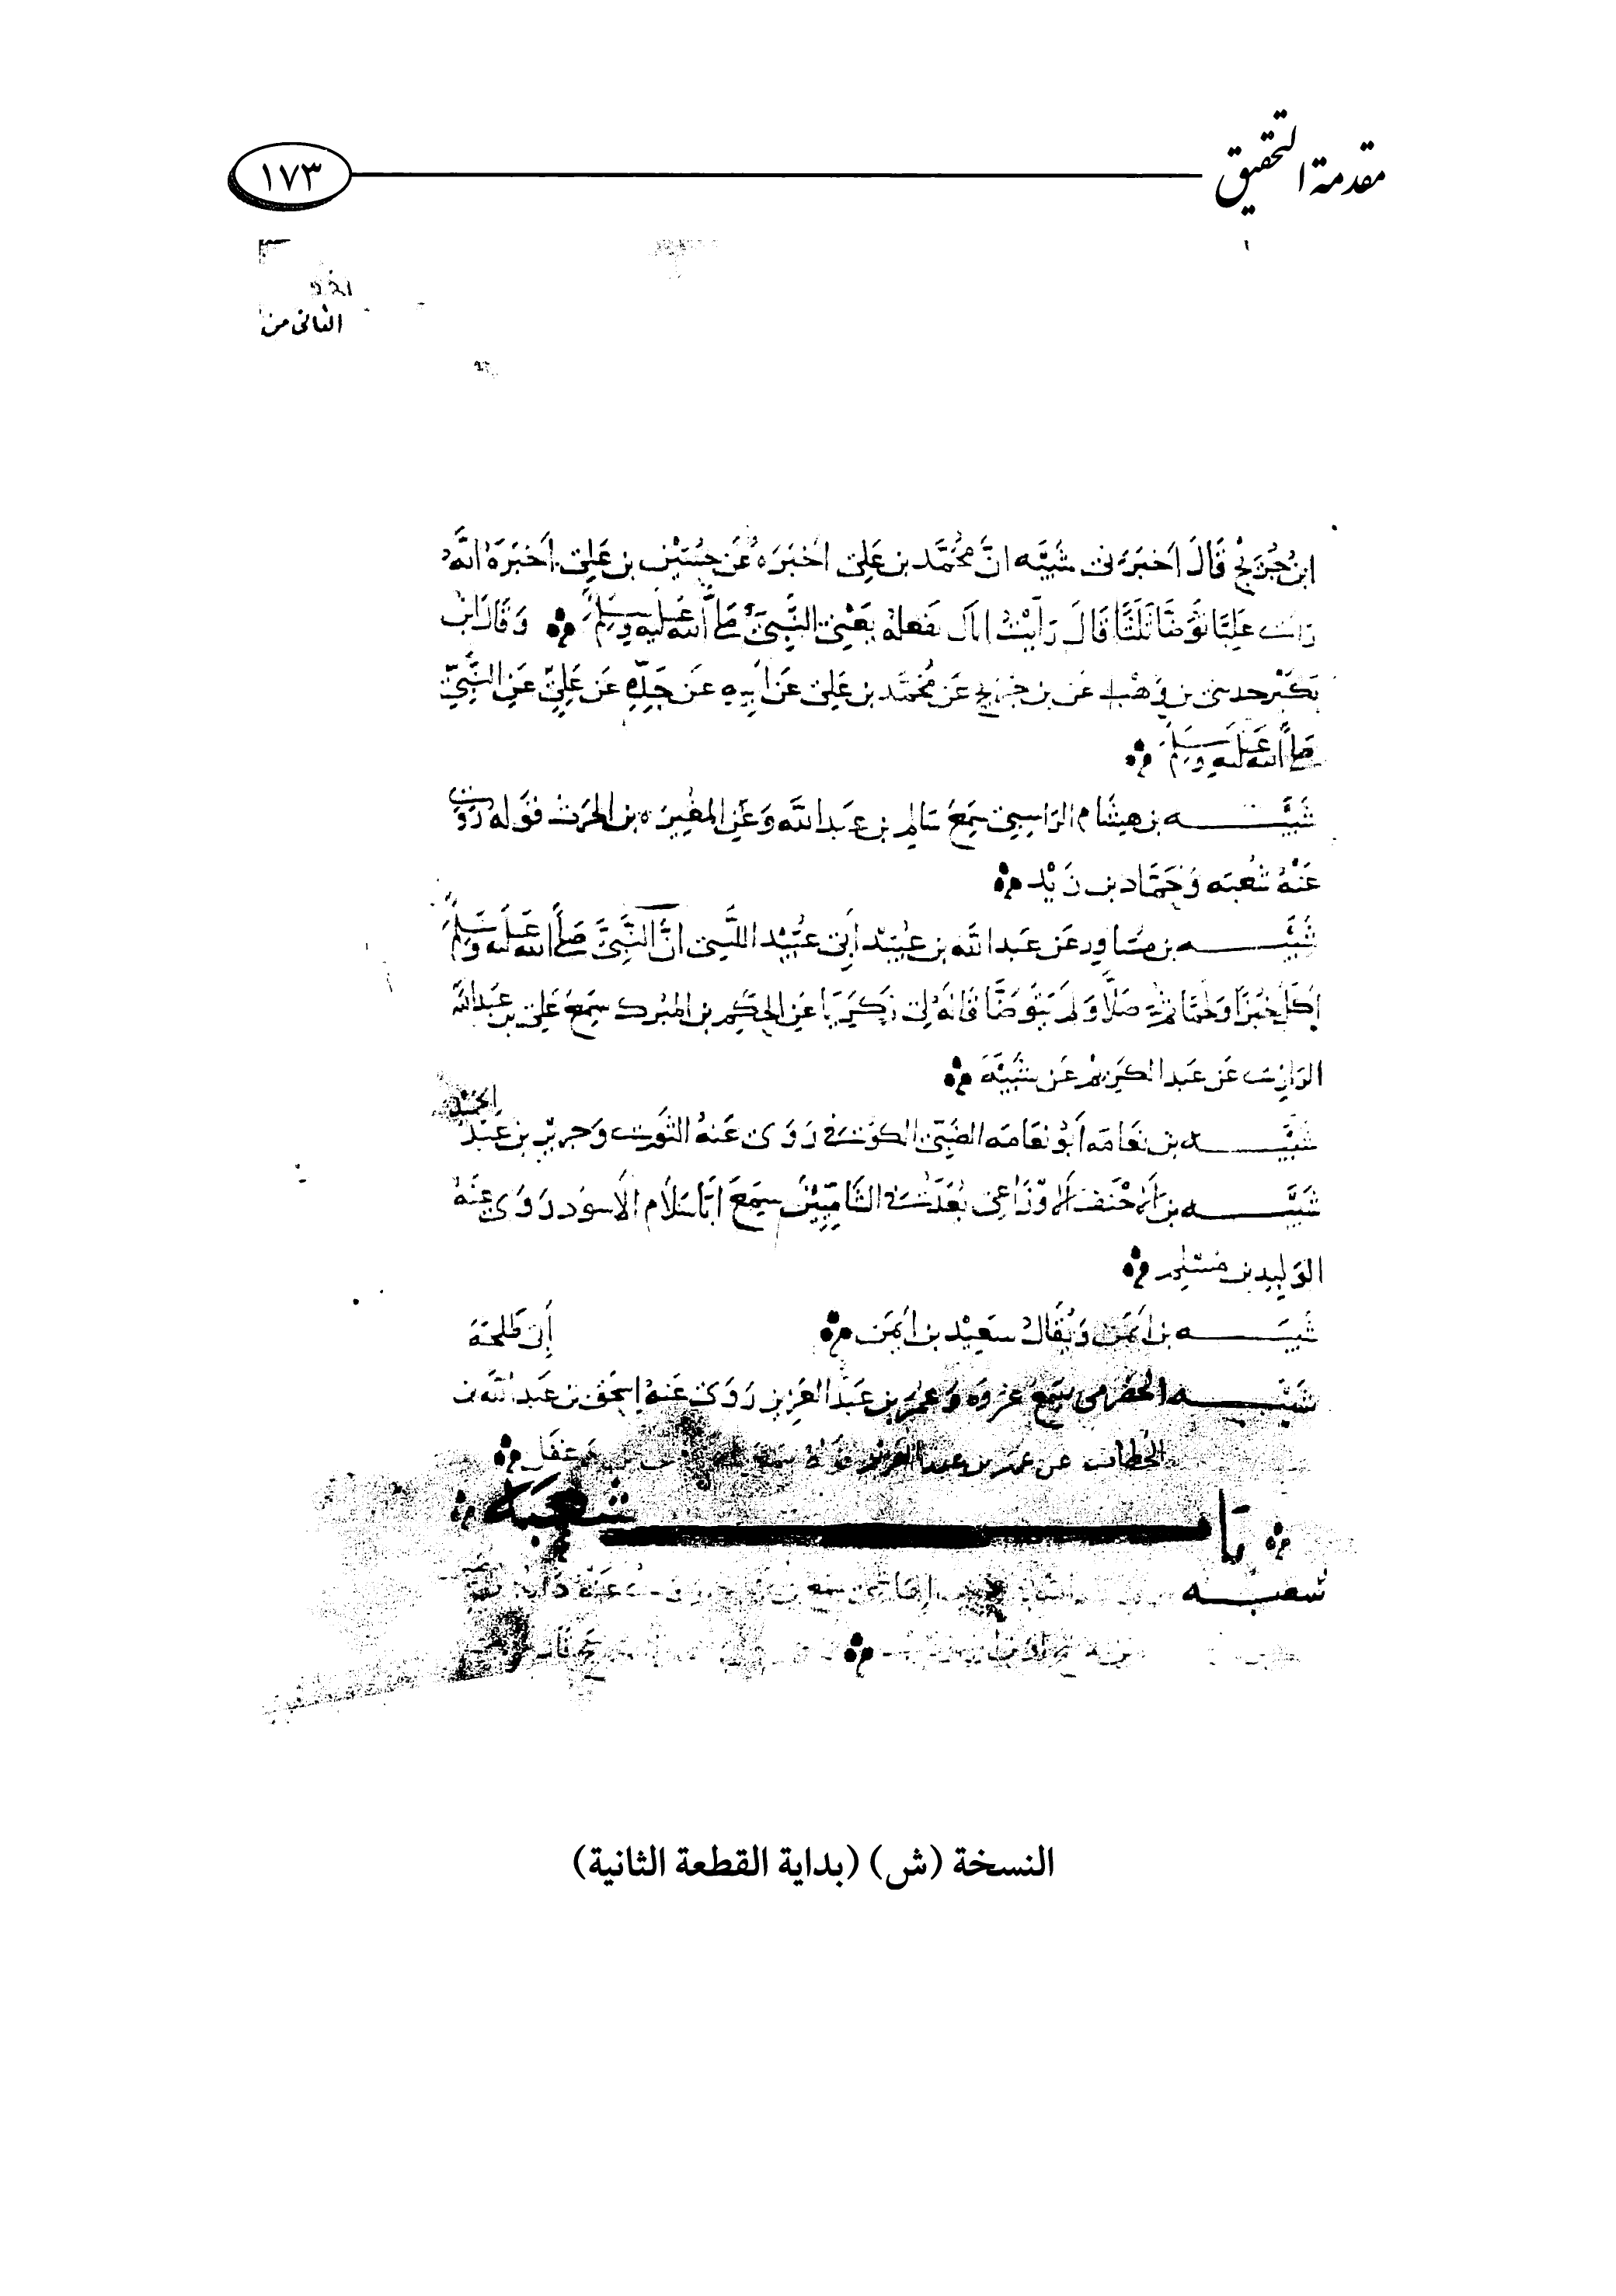 مقدمة التحقيق
١٧٣
الثانى من
ابنُ جُرَيْجٍ قَالَ اَخبَرَنى شَيْبَه انَّ مُحُمَّد بن عَلِىّ اَخبَرَهُ عَن حُسَيْن بن عَلِىّ اَخبَرَهُ انَّهُ
رات عَلِيًّا تَوَضَّا ثَلثًا قَالَ رَاَيْتُ اباك يفعَلهُ يَعْنى النَّبِىَّ صَلَّى اللّٰه عَليه وَسَلم وَقَالَ ابن
بُكَيْر حدثنى بن وَهْب عَن بن جُرَيج عَن مُحَمَّد بن عَلى عَن اَبِيهِ عَن جَدِّهِ عَن عَلِىّ عَن النَّبِىّ
صَلَّى اللّٰه عَليه وَسَلم
شَيْبَــــــه بن هِشَام الرَاسِبِىّ سَمِعَ سَالم بن عَبد اللّه وَعَن المغيرَه بن الحَرث قَولَه رَوَى
عَنْهُ شُعبَه وَحَمَّاد بن زَيْد
شَيْبَــــــه بن مُسَاور عَن عَبد اللّه بن عُبَيْد اَبِى عُبَيْد الليثى انَّ النَّبِىَّ صَلَّى اللّٰه عَليه وَسَلم
اَكَلَ خُبزًا وَلحمًا ثم صَلَّا وَلم يَتَوَضَّا قَالَهُ لِى زَكَرِيَّا عَن الحَكَم بن المُبرَك سَمِعَ عَلى بن عَبد اللّه
الرَازِى عَن عَبد الكَرِيم عَن شَيْبَة
شَيْبَــــــه بن نَعَامَه اَبُو نَعَامَه الضَبِّى الكوفى رَوَى عَنهُ الثَورى وَجرِير بن عَبْد الحَمِيْد
شَيْبَــــــه بن الاَحْنَف الاَوْزَاعِى يُعَدُّ فى الشَامِيِّيْنَ سَمِعَ ابَا سَلَام الاَسوَد رَوَى عَنْهُ
الوَلِيد بن مُسْلِم
شَيبَــــــه بن اَيمَن وَيُقَالُ سَعِيْد بن اَيمَن
شَيْبَــــــه الحَضرَمى سَمِعَ عُروَه وَعُمَر بن عَبد العَزِيز رَوَى عَنهُ اِسحَق بن عَبد اللّه بن اَبى طَلحَة
الخَطاب عن عمر بن عبد العزيز قوله
بَابــــــــ شُعْبَة
شعبــــــه
النسخة (ش) (بداية القطعة الثانية)